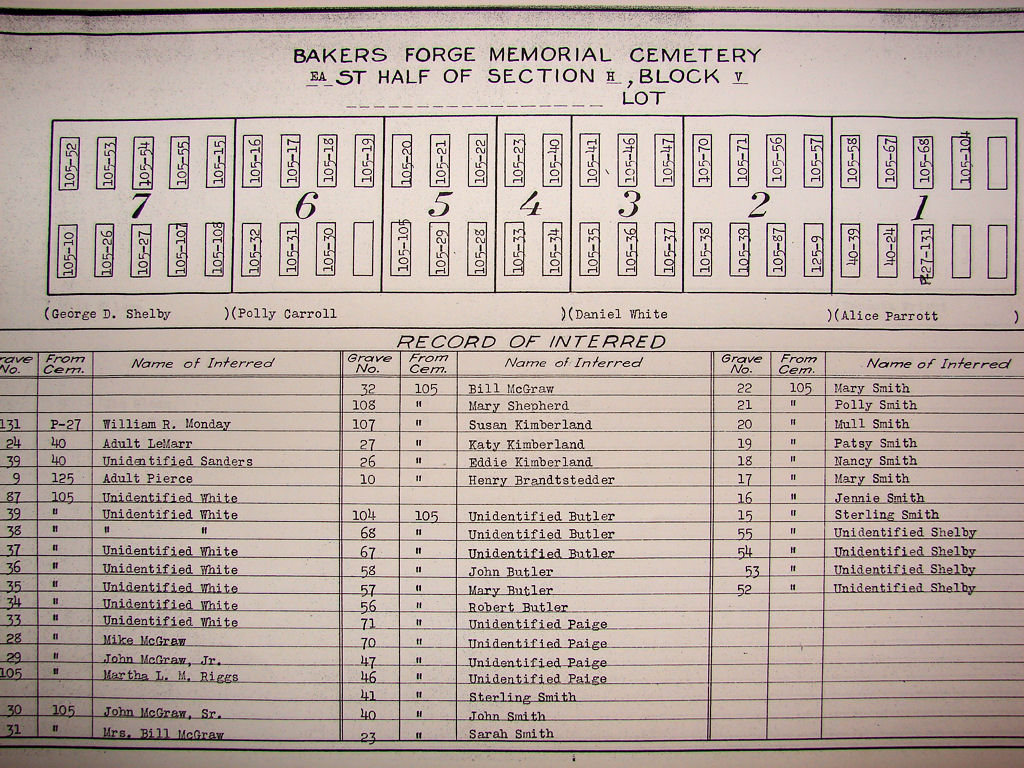 BAKERS FORGE MEMORIAL CEMETERY
EA ST HALF OF SECTION H , BLOCK V
LOT
105-52 105-53 105-54 105-55 105-15 105-16 105-17 105-18 105-19 105-20 105-21 105-22 105-23 105-40 105-41 105-46 105-47 105-70 105-71 105-56 105-57 105-58 105-67 105-68 105-104
7 6 5 4 3 2 1
105-10 105-26 105-27 105-107 105-108 105-32 105-31 105-30 105-105 105-29 105-28 105-33 105-34 105-35 105-36 105-37 105-38 105-39 105-87 125-9 40-39 40-24 P-27-131
(George D. Shelby )(Polly Carroll )(Daniel White )(Alice Parrott )
RECORD OF INTERRED
rave No. From Cem. Name of Interred Grave No. From Cem. Name of Interred Grave No. From Cem. Name of Interred
32 105 Bill McGraw 22 105 Mary Smith
108 " Mary Shepherd 21 " Polly Smith
131 P-27 William R. Monday 107 " Susan Kimberland 20 " Mull Smith
24 40 Adult LeMarr 27 " Katy Kimberland 19 " Patsy Smith
39 40 Unidentified Sanders 26 " Eddie Kimberland 18 " Nancy Smith
9 125 Adult Pierce 10 " Henry Brandtstedder 17 " Mary Smith
87 105 Unidentified White 16 " Jennie Smith
39 " Unidentified White 104 105 Unidentified Butler 15 " Sterling Smith
38 " " " 68 " Unidentified Butler 55 " Unidentified Shelby
37 " Unidentified White 67 " Unidentified Butler 54 " Unidentified Shelby
36 " Unidentified White 58 " John Butler 53 " Unidentified Shelby
35 " Unidentified White 57 " Mary Butler 52 " Unidentified Shelby
34 " Unidentified White 56 " Robert Butler
33 " Unidentified White 71 " Unidentified Paige
28 " Mike McGraw 70 " Unidentified Paige
29 " John McGraw, Jr. 47 " Unidentified Paige
105 " Martha L. M. Riggs 46 " Unidentified Paige
41 " Sterling Smith
30 105 John McGraw, Sr. 40 " John Smith
31 " Mrs. Bill McGraw 23 " Sarah Smith